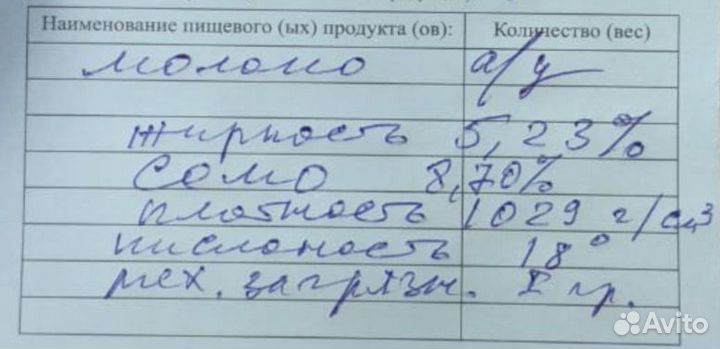 Наименование пищевого (ых) продукта (ов): Количество (вес)
молоко а/у
жирность 5,23%
сомо 8,70%
плотность 1029 г/см3
кислоность 18°
мех. загрязн. I гр.
Avito